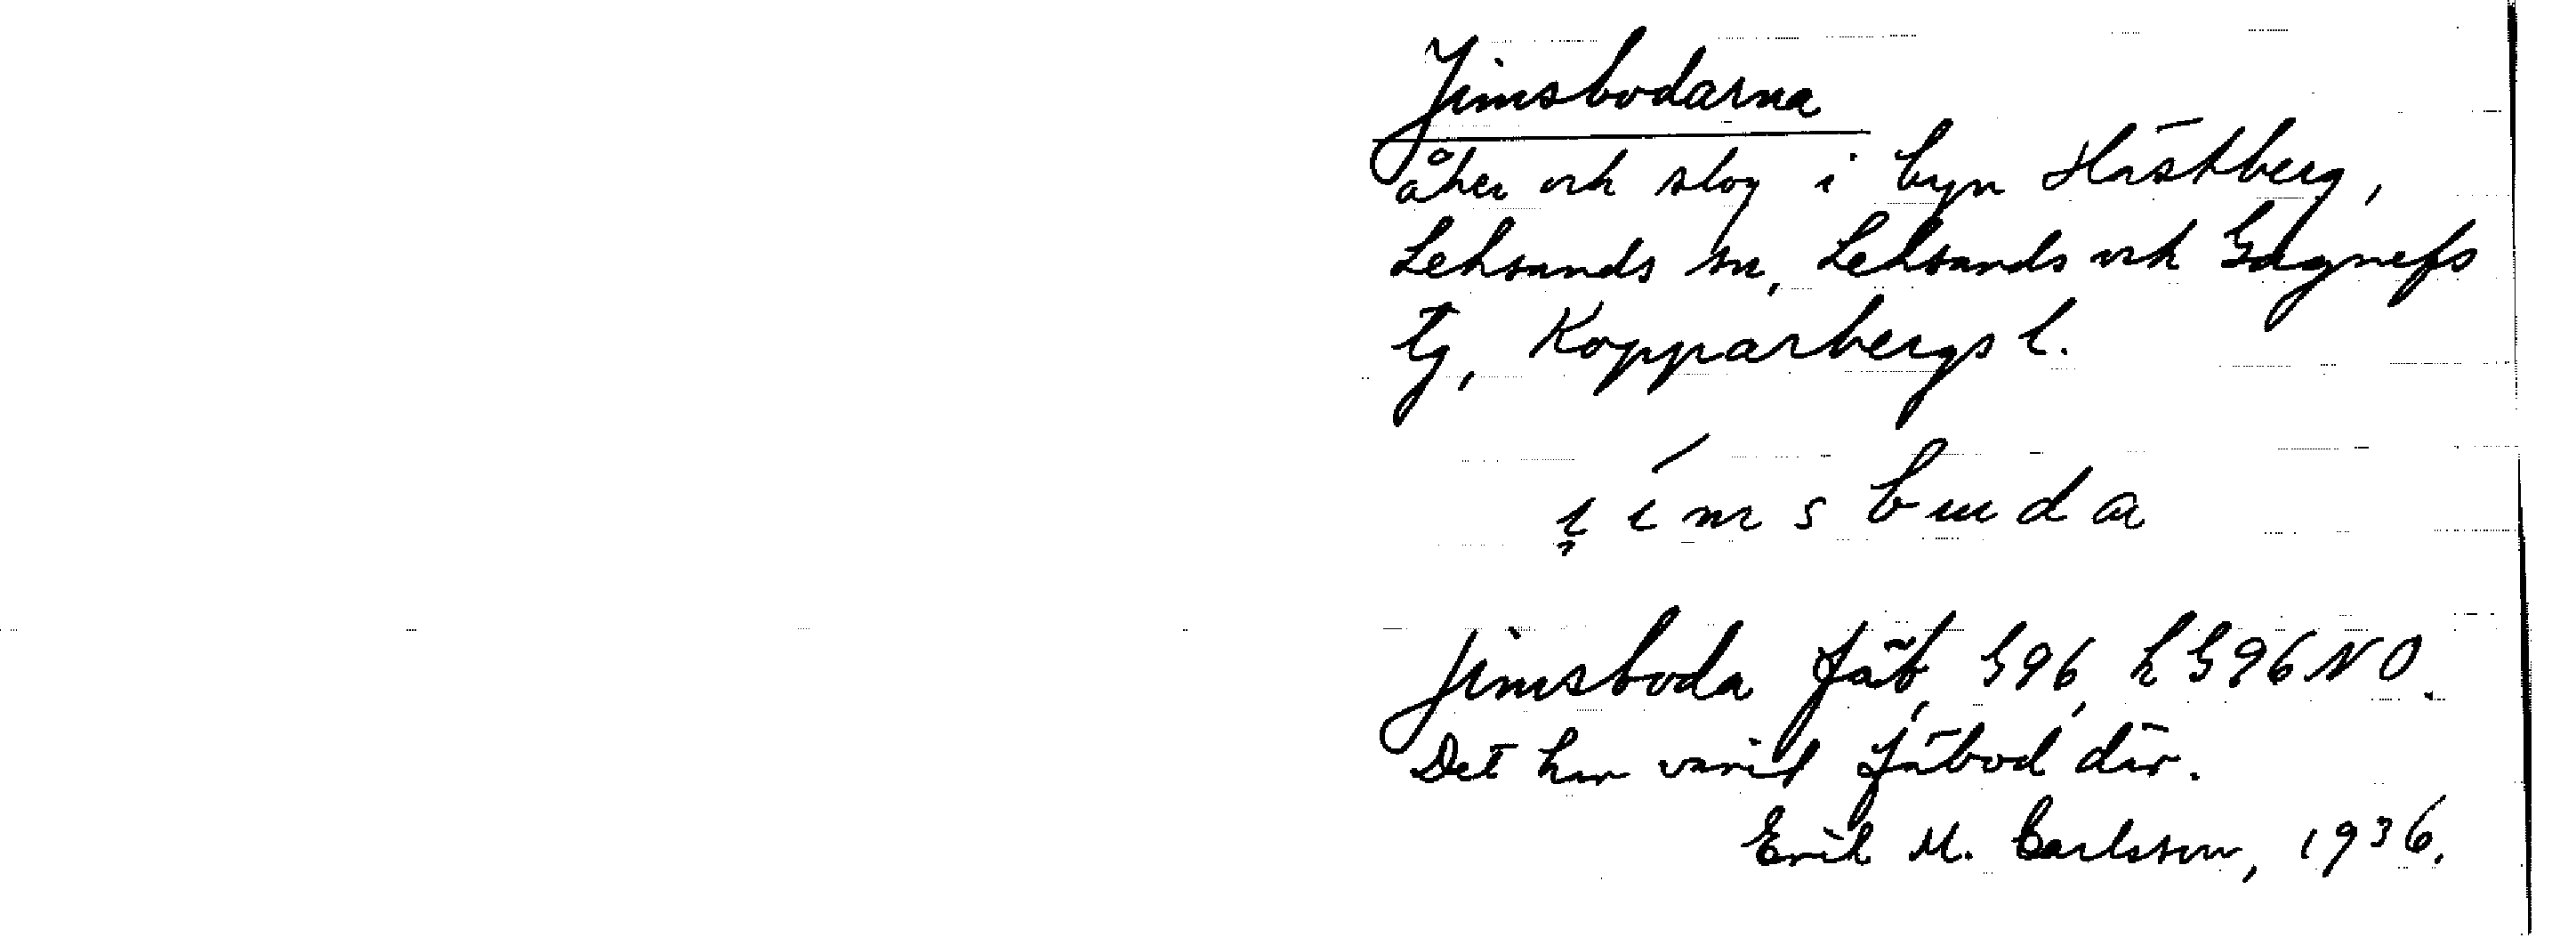 Jimsbodarna
åker och slog i byn Hästberg,
Leksands sn, Leksands och Gagnefs
tg, Kopparbergs l.
i̯ímsbuda
Jimsboda fäb, G96, k G96 NO.
Det har varit fäbod där.
Erik M. Carlsson, 1936.